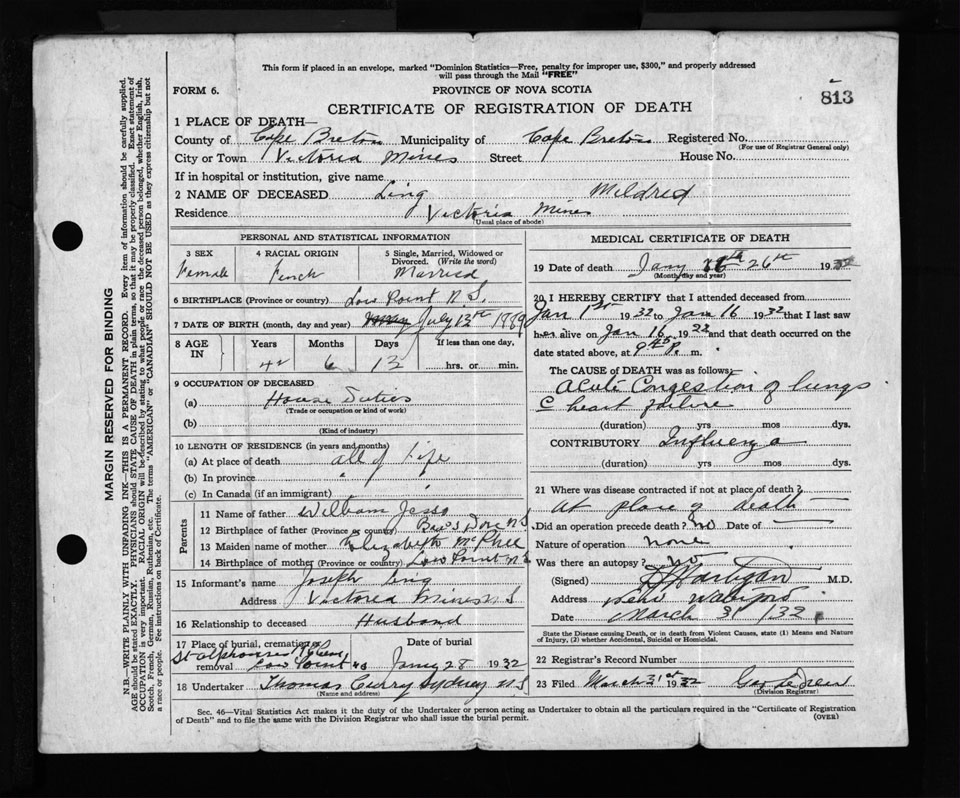 This form if placed in an envelope, marked "Dominion Statistics—Free, penalty for improper use, $300," and properly addressed
will pass through the Mail "FREE"
FORM 6. PROVINCE OF NOVA SCOTIA
813
CERTIFICATE OF REGISTRATION OF DEATH
1 PLACE OF DEATH—
County of Cape Breton Municipality of Cape Breton Registered No.
(For use of Registrar General only)
City or Town Victoria Mines Street House No.
If in hospital or institution, give name
2 NAME OF DECEASED Ling Mildred
Residence Victoria Mines
(Usual place of abode)
PERSONAL AND STATISTICAL INFORMATION
3 SEX 4 RACIAL ORIGIN 5 Single, Married, Widowed or
Divorced. (Write the word)
Female French Married
6 BIRTHPLACE (Province or country) Low Point N.S.
7 DATE OF BIRTH (month, day and year) July 13th 1889
8 AGE IN Years Months Days If less than one day,
42 6 13 hrs. or min.
9 OCCUPATION OF DECEASED
(a) House Duties
(Trade or occupation or kind of work)
(b)
(Kind of industry)
10 LENGTH OF RESIDENCE (in years and months)
(a) At place of death all of life
(b) In province "
(c) In Canada (if an immigrant)
Parents
11 Name of father William Jesso
12 Birthplace of father (Province or country) N S
13 Maiden name of mother Elizabeth McPhee
14 Birthplace of mother (Province or country) Low Point N S
15 Informant's name Joseph Ling
Address Victoria Mines N S
16 Relationship to deceased Husband
17 Place of burial, cremation or removal St Alphonsus Low Point NS
Date of burial Jany 28 1932
18 Undertaker Thomas Curry Sydney N S
(Name and address)
MEDICAL CERTIFICATE OF DEATH
19 Date of death Jany 26th 1932
(Month, day and year)
20 I HEREBY CERTIFY that I attended deceased from
Jan 1st 1932 to Jan 16 1932 that I last saw
her alive on Jan 16 1932 and that death occurred on
date stated above, at 9 45 P. m.
The CAUSE of DEATH was as follows:
Acute Congestion of lungs
c heart failure
(duration) yrs mos dys.
CONTRIBUTORY Influenza
(duration) yrs mos dys.
21 Where was disease contracted if not at place of death?
At place of death
Did an operation precede death? No Date of
Nature of operation none
Was there an autopsy? no
(Signed) Hartigan M.D.
Address New Waterford
Date March 31/32
State the Disease causing Death, or in death from Violent Causes, state (1) Means and Nature
of Injury, (2) whether Accidental, Suicidal or Homicidal.
22 Registrar's Record Number
23 Filed March 31st 1932
(Division Registrar)
Sec. 46—Vital Statistics Act makes it the duty of the Undertaker or person acting as Undertaker to obtain all the particulars required in the "Certificate of Registration
of Death" and to file the same with the Division Registrar who shall issue the burial permit.
(OVER)
MARGIN RESERVED FOR BINDING
N.B.—WRITE PLAINLY WITH UNFADING INK—THIS IS A PERMANENT RECORD. Every item of information should be carefully supplied.
AGE should be stated EXACTLY. PHYSICIANS should STATE CAUSE OF DEATH in plain terms, so that it may be properly classified. Exact statement of
OCCUPATION is very important. RACIAL ORIGIN will be described by stating to what people or race the deceased person belonged, whether English, Irish,
Scotch, French, German, Russian, Ruthenian, etc. The terms "AMERICAN" or "CANADIAN" SHOULD NOT BE USED as they express citizenship but not
a race or people. See instructions on back of Certificate.